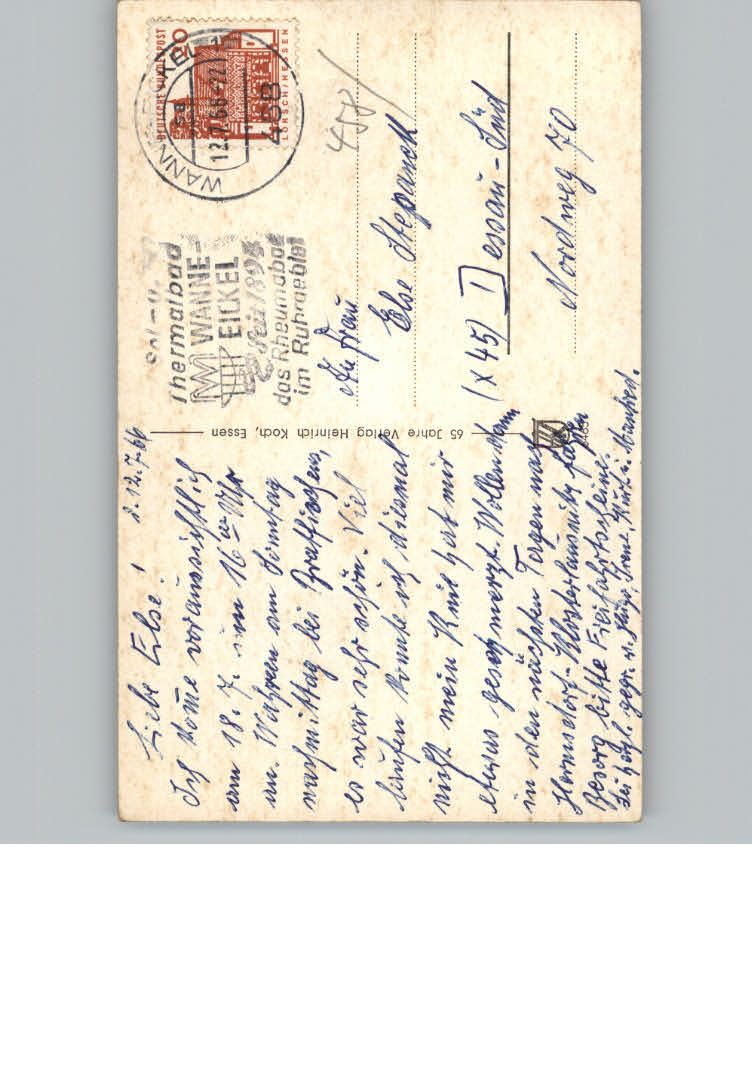 d. 12.7.66
Liebe Else!
Ich kome voraussichtlich
am 18.7. um 16 00 Uhr
an. Wahren am Sonntag
nachmittag bei
es war sehr schön. Viel
laufen konnte ich diesmal
nicht mein Knie hat mir
etwas geschmerzt. Wollen dann
in den nächsten Tagen nach
Hermsdorf-Klosterlausnitz fahren
Besorg bitte Freifahrtscheine.
Sei herzl. gegr. v. u. Manfred.
65 Jahre Verlag Heinrich Koch, Essen
DEUTSCHE BUNDESPOST
20
LORSCH/HESSEN
WANNE-EICKEL 1
12.7.66-22
468
Thermalbad
WANNE-
EICKEL
Seit 1893
das Rheumabad
im Ruhrgebiet
458
An Frau
Else Stepanek
(X 45) Dessau-Süd
Nordweg 70